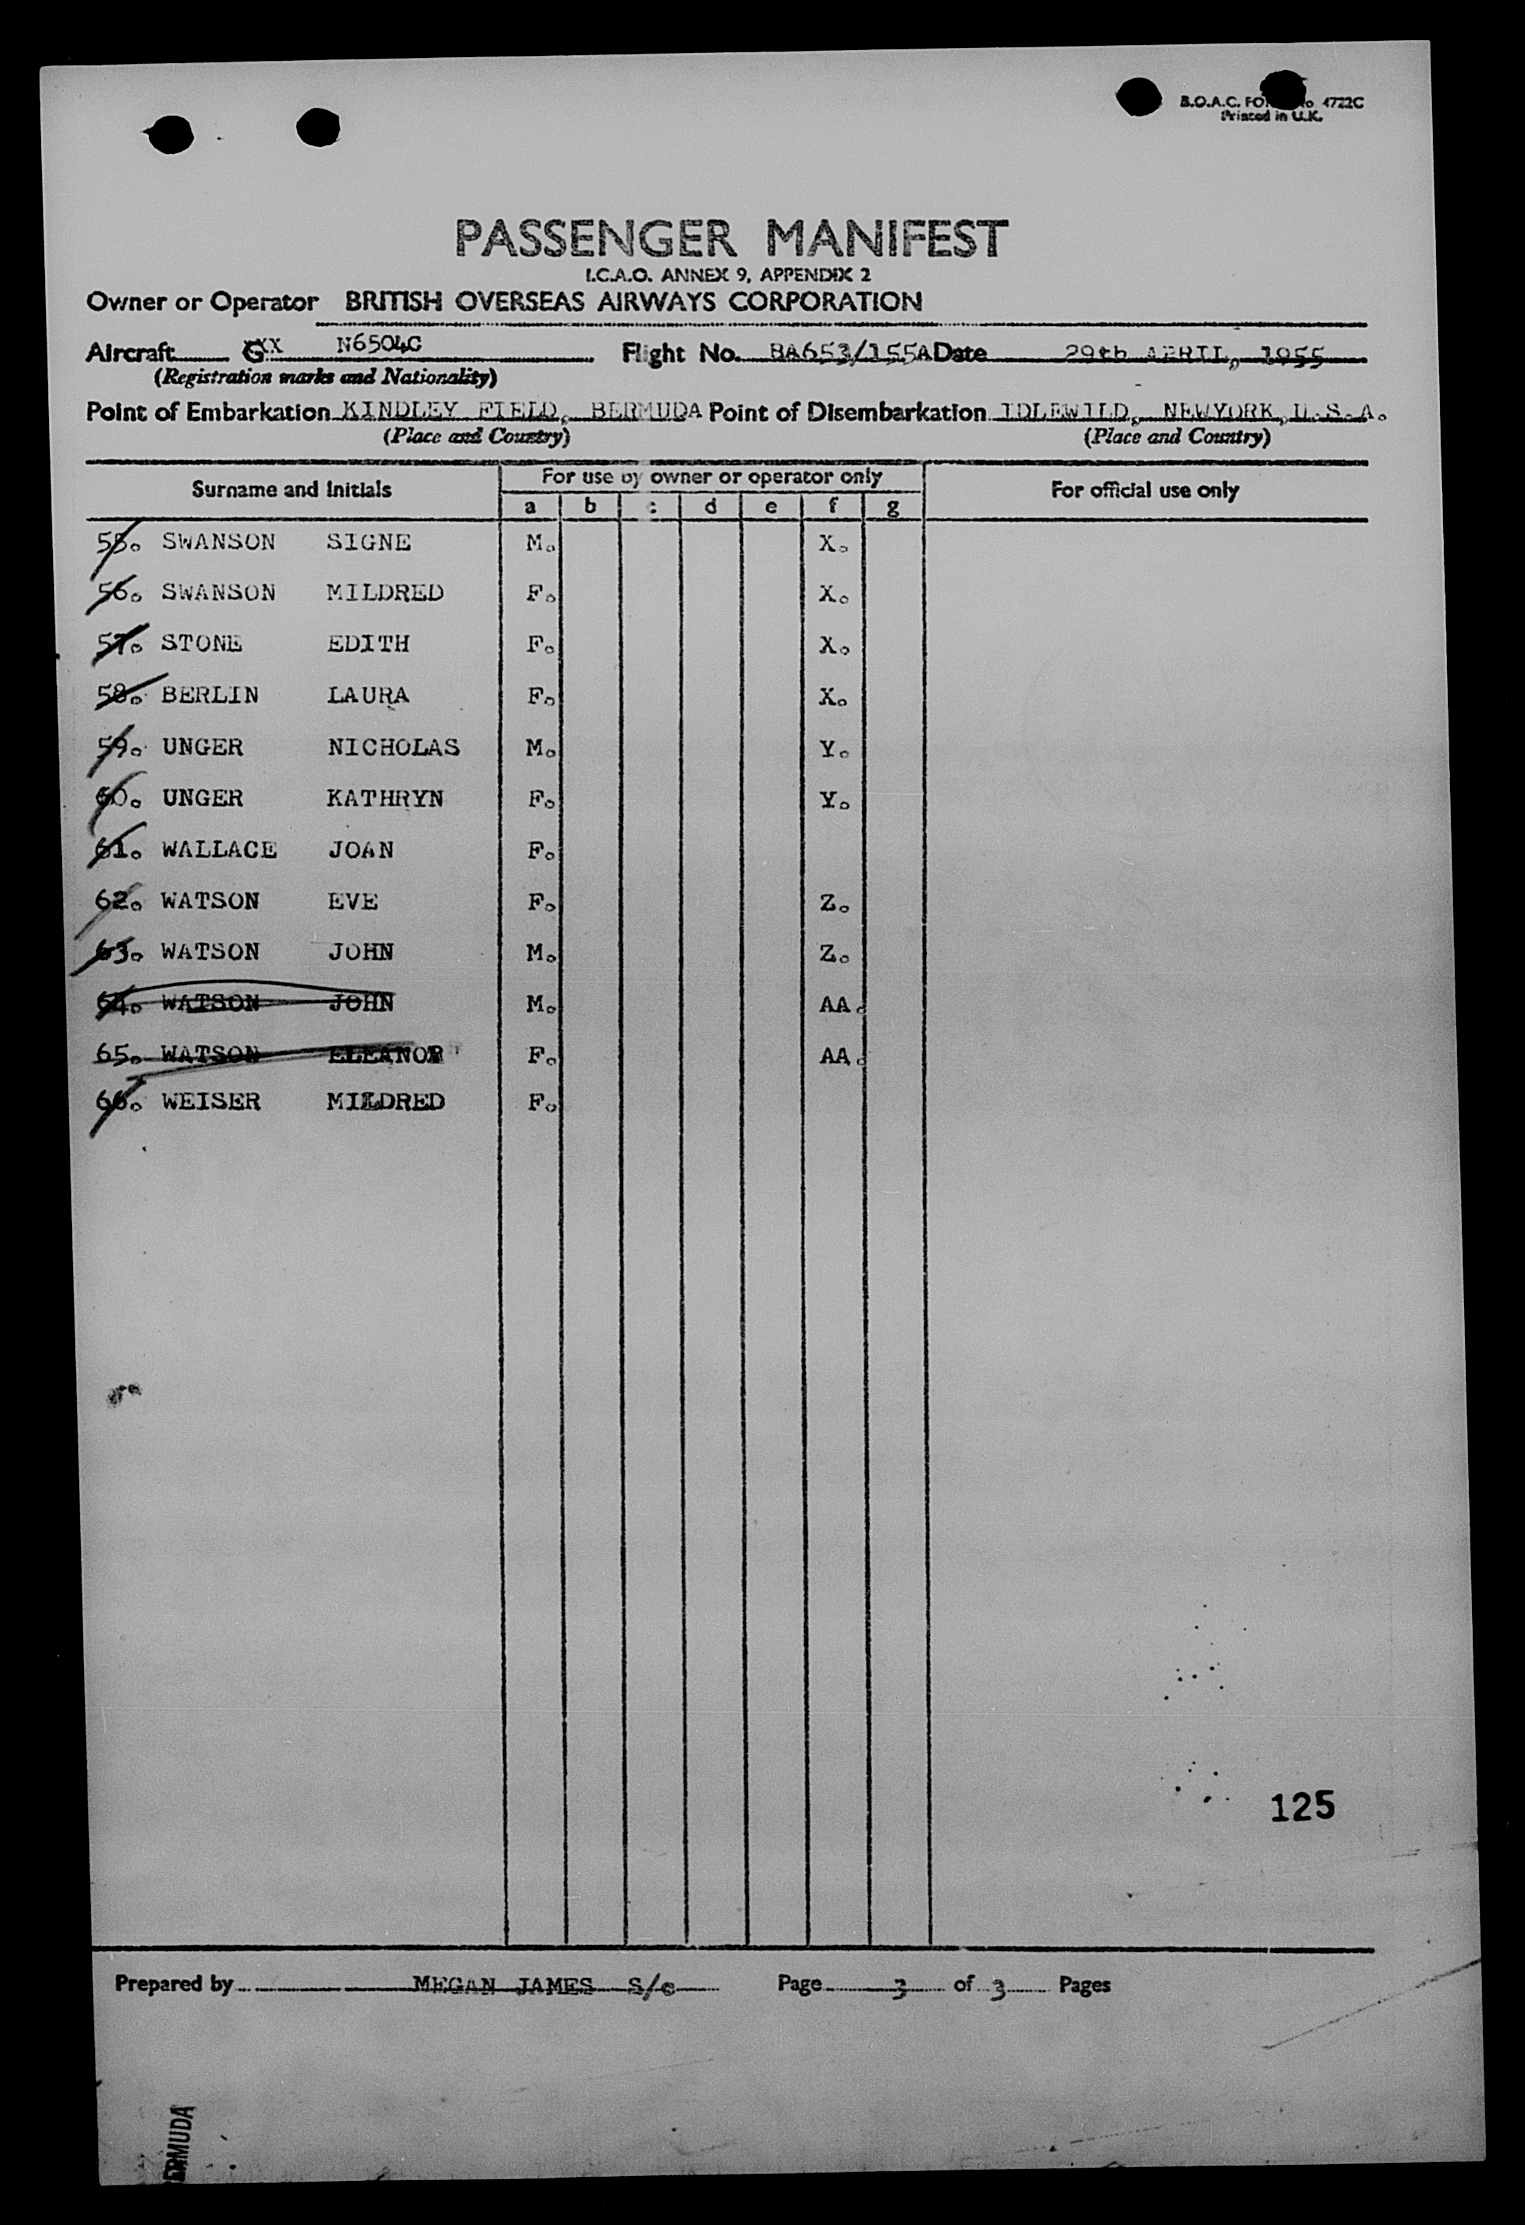 B.O.A.C. FO No 4722C
Printed in U.K.
PASSENGER MANIFEST
I.C.A.O. ANNEX 9, APPENDIX 2
Owner or Operator BRITISH OVERSEAS AIRWAYS CORPORATION
Aircraft GXX N6504C Flight No. BA653/155A Date 29th APRIL, 1955
(Registration marks and Nationality)
Point of Embarkation KINDLEY FIELD, BERMUDA Point of Disembarkation IDLEWILD, NEWYORK, U.S.A.
(Place and Country) (Place and Country)
Surname and Initials For use by owner or operator only For official use only
a b c d e f g
55. SWANSON SIGNE M. X.
56. SWANSON MILDRED F. X.
57. STONE EDITH F. X.
58. BERLIN LAURA F. X.
59. UNGER NICHOLAS M. Y.
60. UNGER KATHRYN F. Y.
61. WALLACE JOAN F.
62. WATSON EVE F. Z.
63. WATSON JOHN M. Z.
64. WATSON JOHN M. AA.
65. WATSON ELEANOR F. AA.
66. WEISER MILDRED F.
125
Prepared by MEGAN JAMES S/c Page 3 of 3 Pages
ERMUDA